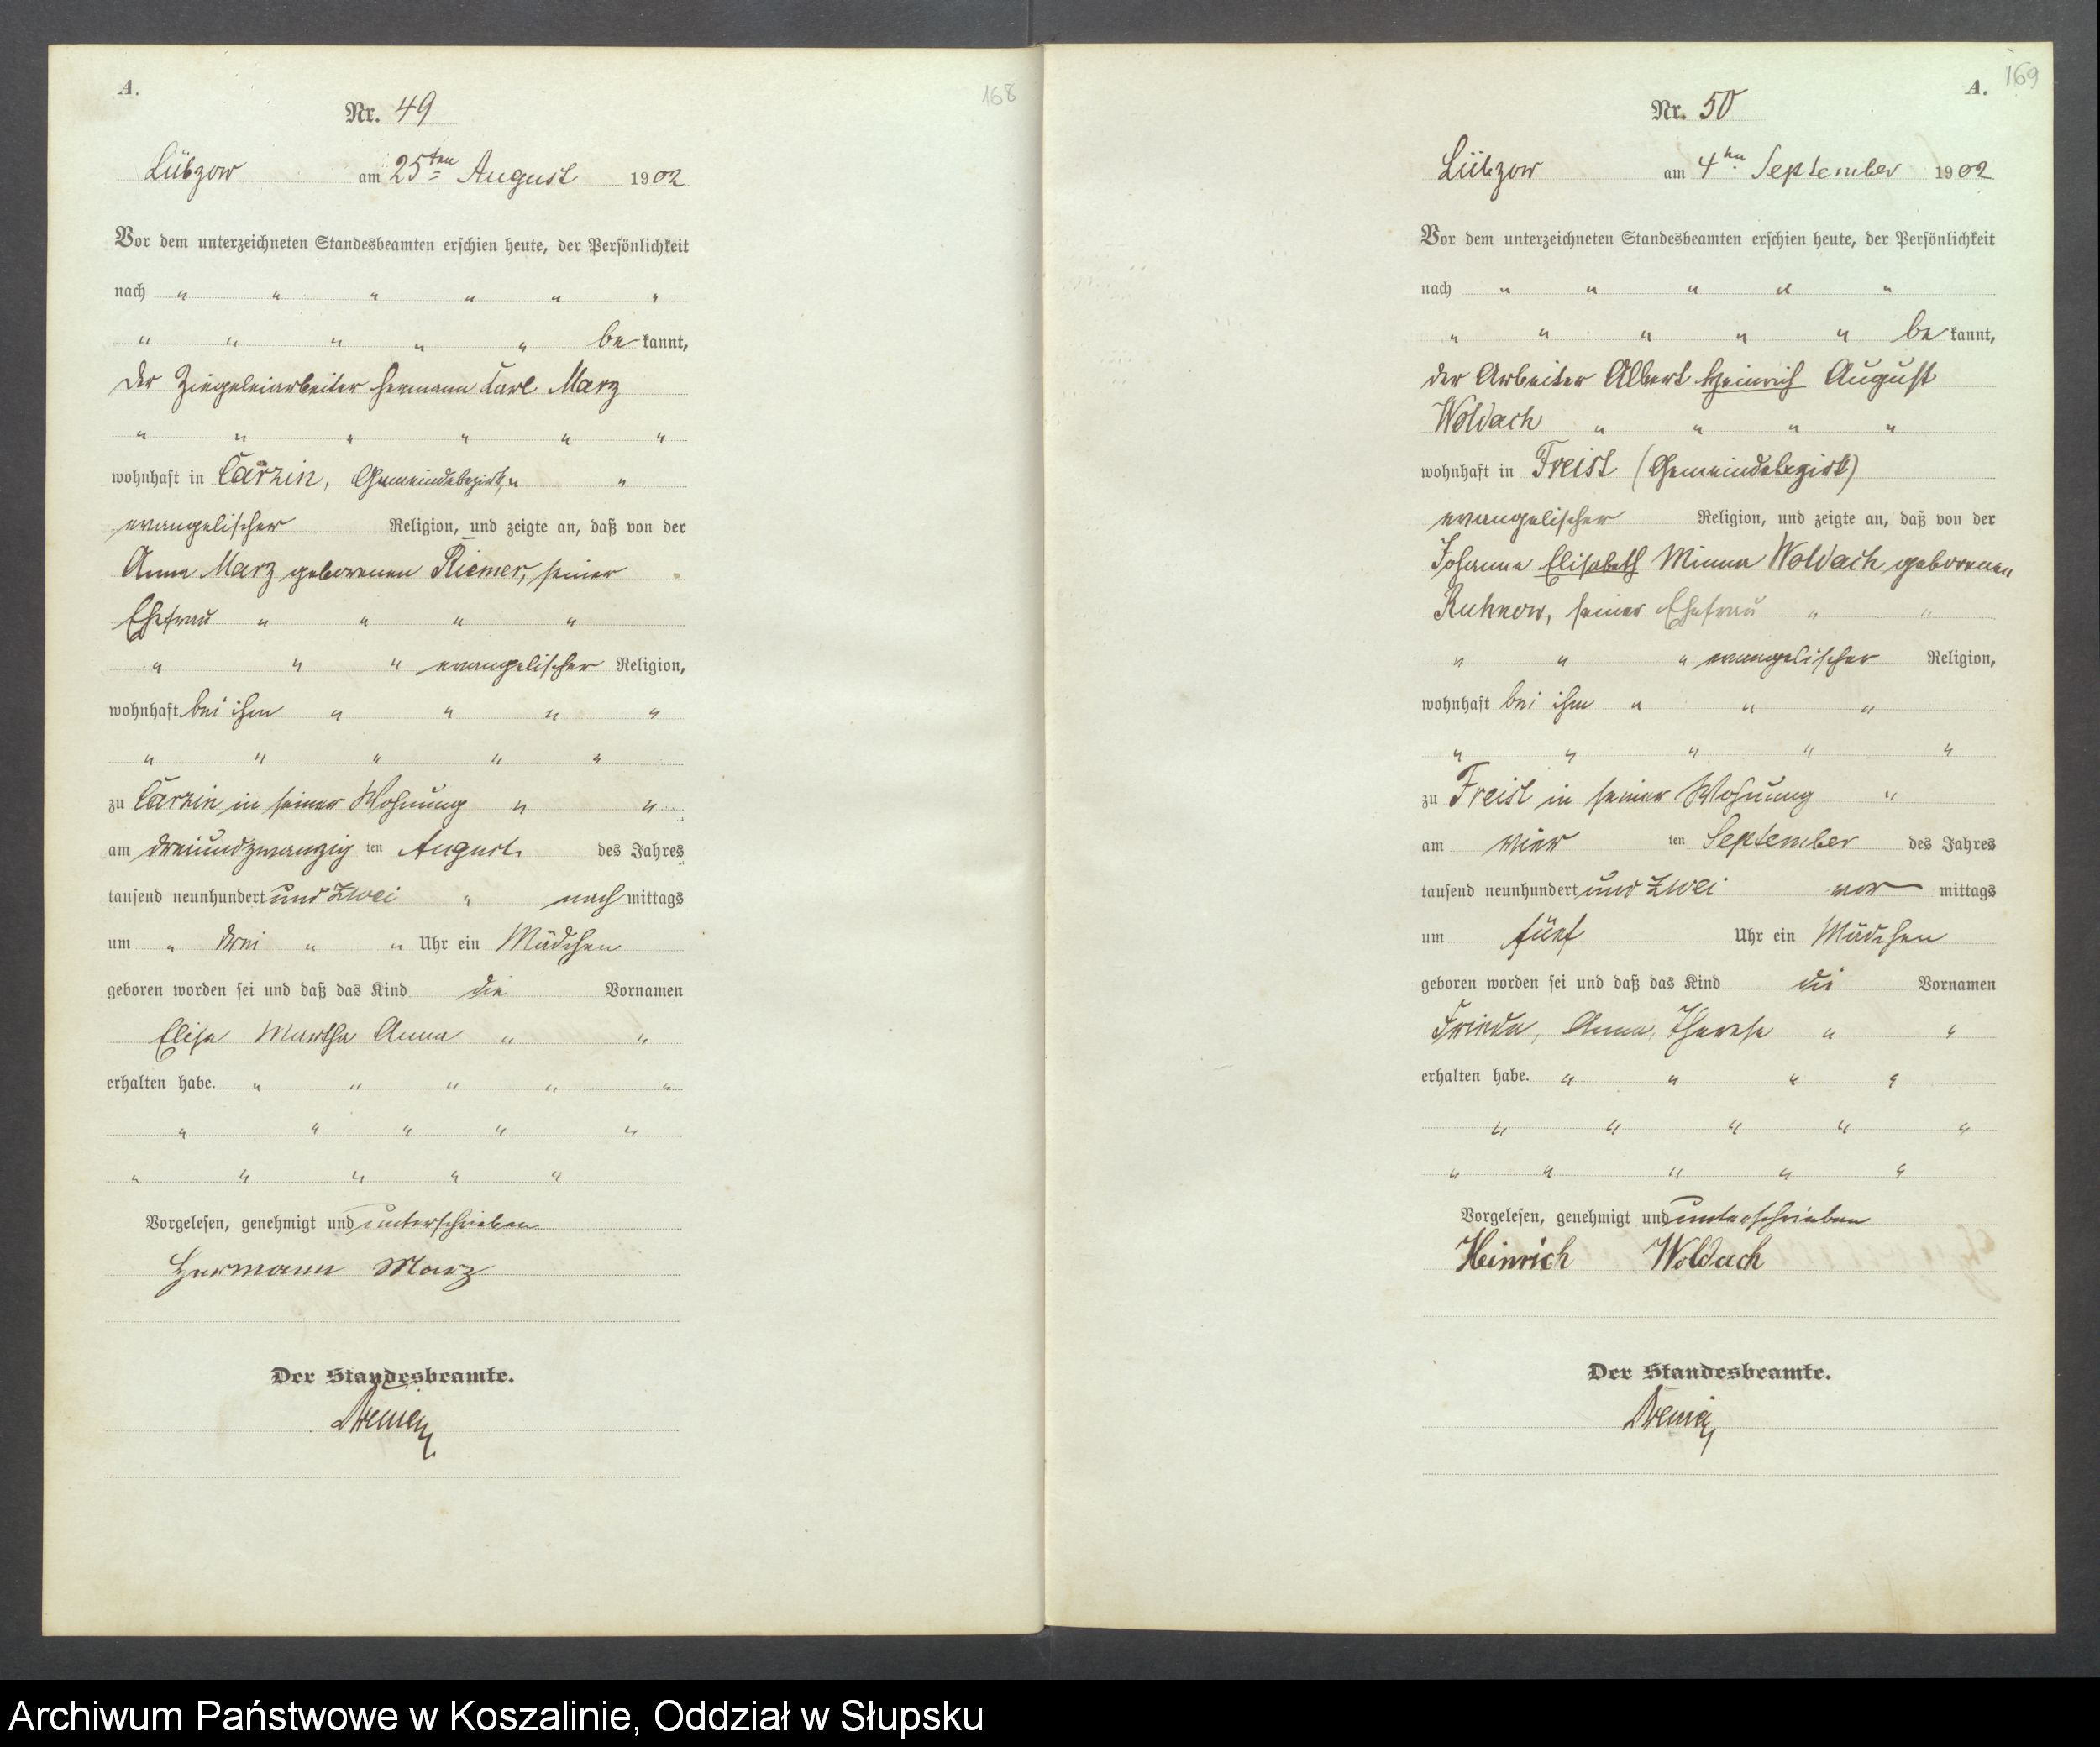 A.
168
Nr. 49
Lübzow am 25ten August 1902
Vor dem unterzeichneten Standesbeamten erschien heute, der Persönlichkeit
nach " " " " " "
" " " " " be kannt,
der Ziegeleiarbeiter Hermann Karl Marz
" " " " " "
wohnhaft in Carzin, Gemeindebezirk, " "
evangelischer Religion, und zeigte an, daß von der
Anna Marz geborenen Riemer, seiner
Ehefrau " " " "
" " " evangelischer Religion,
wohnhaft bei ihm " " " "
" " " " "
zu Carzin in seiner Wohnung " "
am dreiundzwanzig ten August des Jahres
tausend neunhundert und zwei " nach mittags
um " drei " " Uhr ein Mädchen
geboren worden sei und daß das Kind die Vornamen
Elise Martha Anna " "
erhalten habe. " " " " "
" " " " "
" " " " "
Vorgelesen, genehmigt und unterschrieben
Hermann Marz
Der Standesbeamte.
A.
169
Nr. 50
Lübzow am 4ten September 1902
Vor dem unterzeichneten Standesbeamten erschien heute, der Persönlichkeit
nach " " " " "
" " " " " be kannt,
der Arbeiter Albert Heinrich August
Woldach " " " "
wohnhaft in Freist (Gemeindebezirk)
evangelischer Religion, und zeigte an, daß von der
Johanna Elisabeth Minna Woldach geborenen
Kuhnow, seiner Ehefrau " "
" " " evangelischer Religion,
wohnhaft bei ihm " " "
" " " " "
zu Freist in seiner Wohnung "
am vier ten September des Jahres
tausend neunhundert und zwei vor mittags
um fünf Uhr ein Mädchen
geboren worden sei und daß das Kind die Vornamen
Frieda, Anna, Therese " "
erhalten habe. " " " "
" " " " "
" " " " "
Vorgelesen, genehmigt und unterschrieben
Heinrich Woldach
Der Standesbeamte.
Archiwum Państwowe w Koszalinie, Oddział w Słupsku